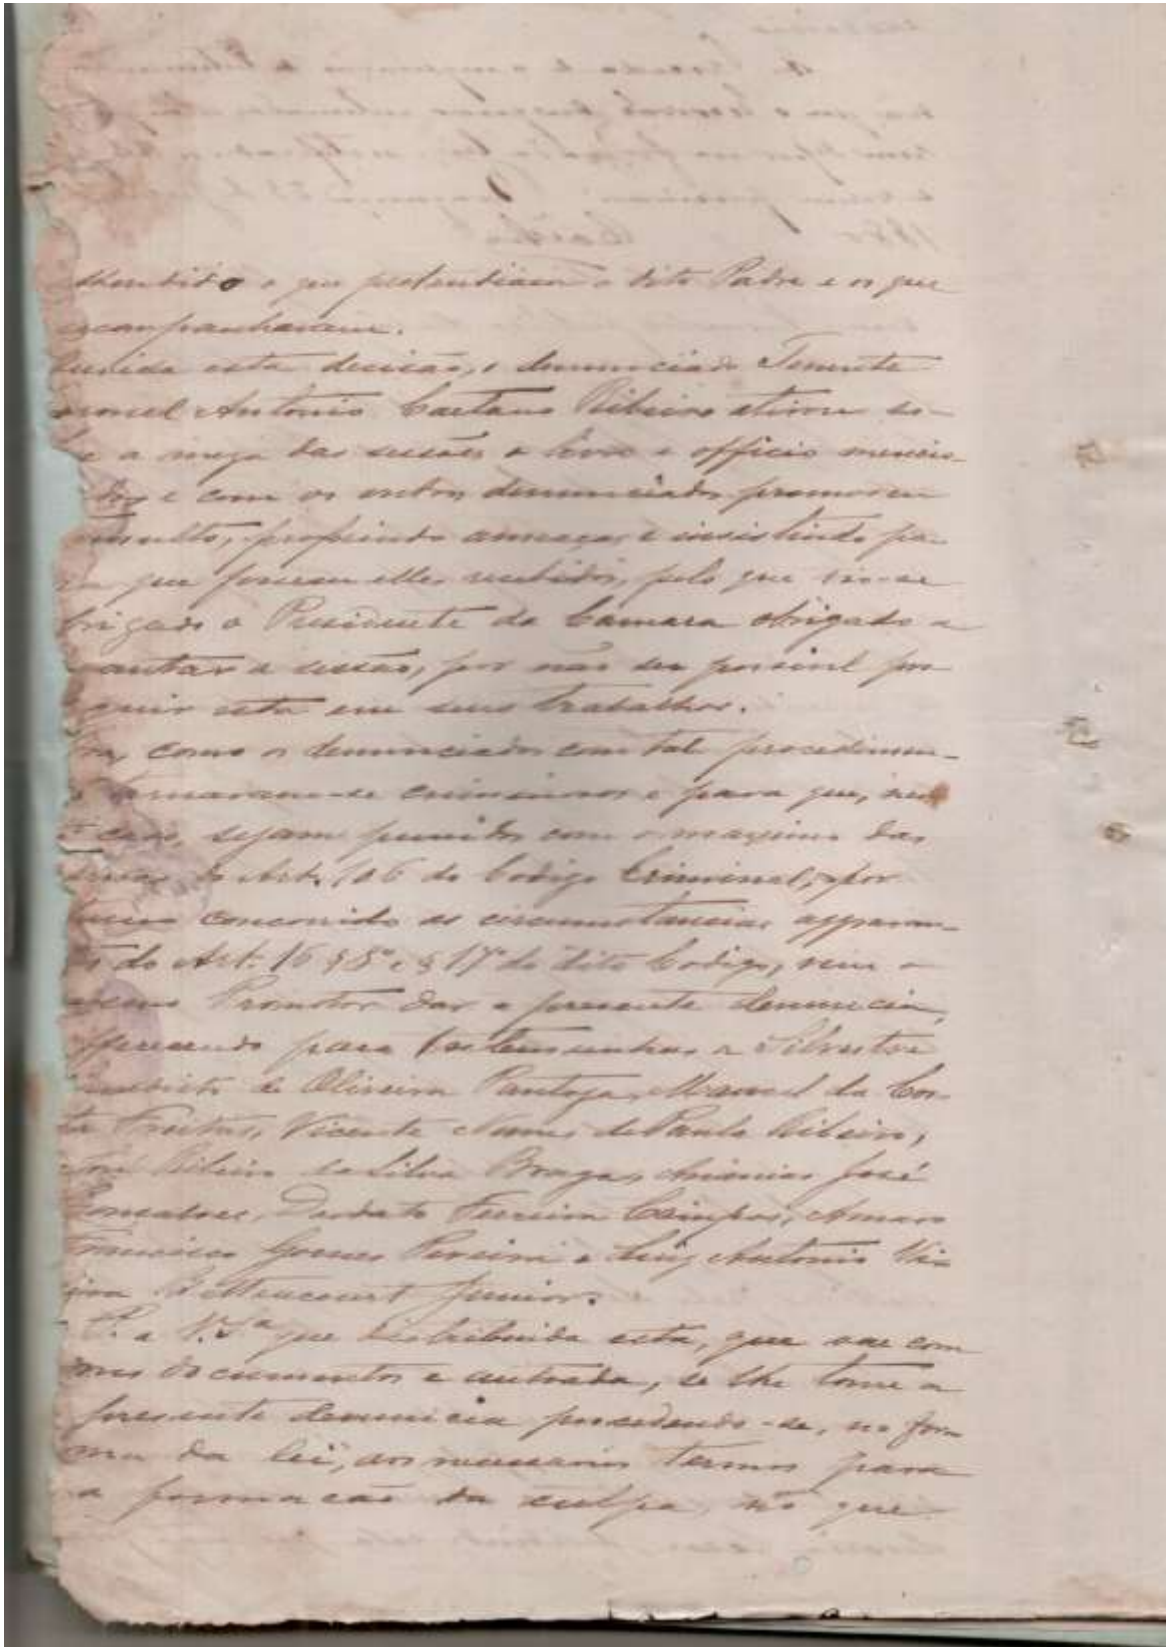 attendido o que pretendiam o dito Padre e os que
acompanhavam.
esta decisão, o denunciado Tenente
Coronel Antonio Caetano Ribeiro atirou so-
bre a meza das sessões o livro e officio mencio-
nados e com os outros denunciados promoveu
tumulto, proferindo ameaças e insistindo pa-
ra que fossem elles recebidos, pelo que vio-se
brigado o Presidente da Camara obrigado a
levantar a sessão, por não ser possivel pro
seguir esta em seus trabalhos.
Ora, como os denunciados com tal procedimen-
to tornaram-se criminosos e para que,
caso, sejam punidos com o maximo das
penas do Art. 106 do Codigo Criminal, por
terem concorrido as circumstancias aggravan-
tes do Art. 16 § 8º e § 17º do dito Codigo, vem o
mesmo Promotor dar a presente denuncia,
offerecendo para testemunhas a Silvestre
de Oliveira Pantoja, Manoel da Cos-
ta Freitas, Vicente Nunes de Paula Ribeiro,
José Ribeiro da Silva Braga, Ananias José
Gonsalves, Deodato Ferreira Campos, Amaro
Francisco Gomes Pereira e Luiz Antonio Vi-
eira Bettencourt Junior.
P. a V. Sª que distribuida esta, que vae com
documentos e autoada, se lhe tome a
presente denuncia procedendo-se, na for
ma da lei, aos necessarios termos para
a formação da culpa, no que